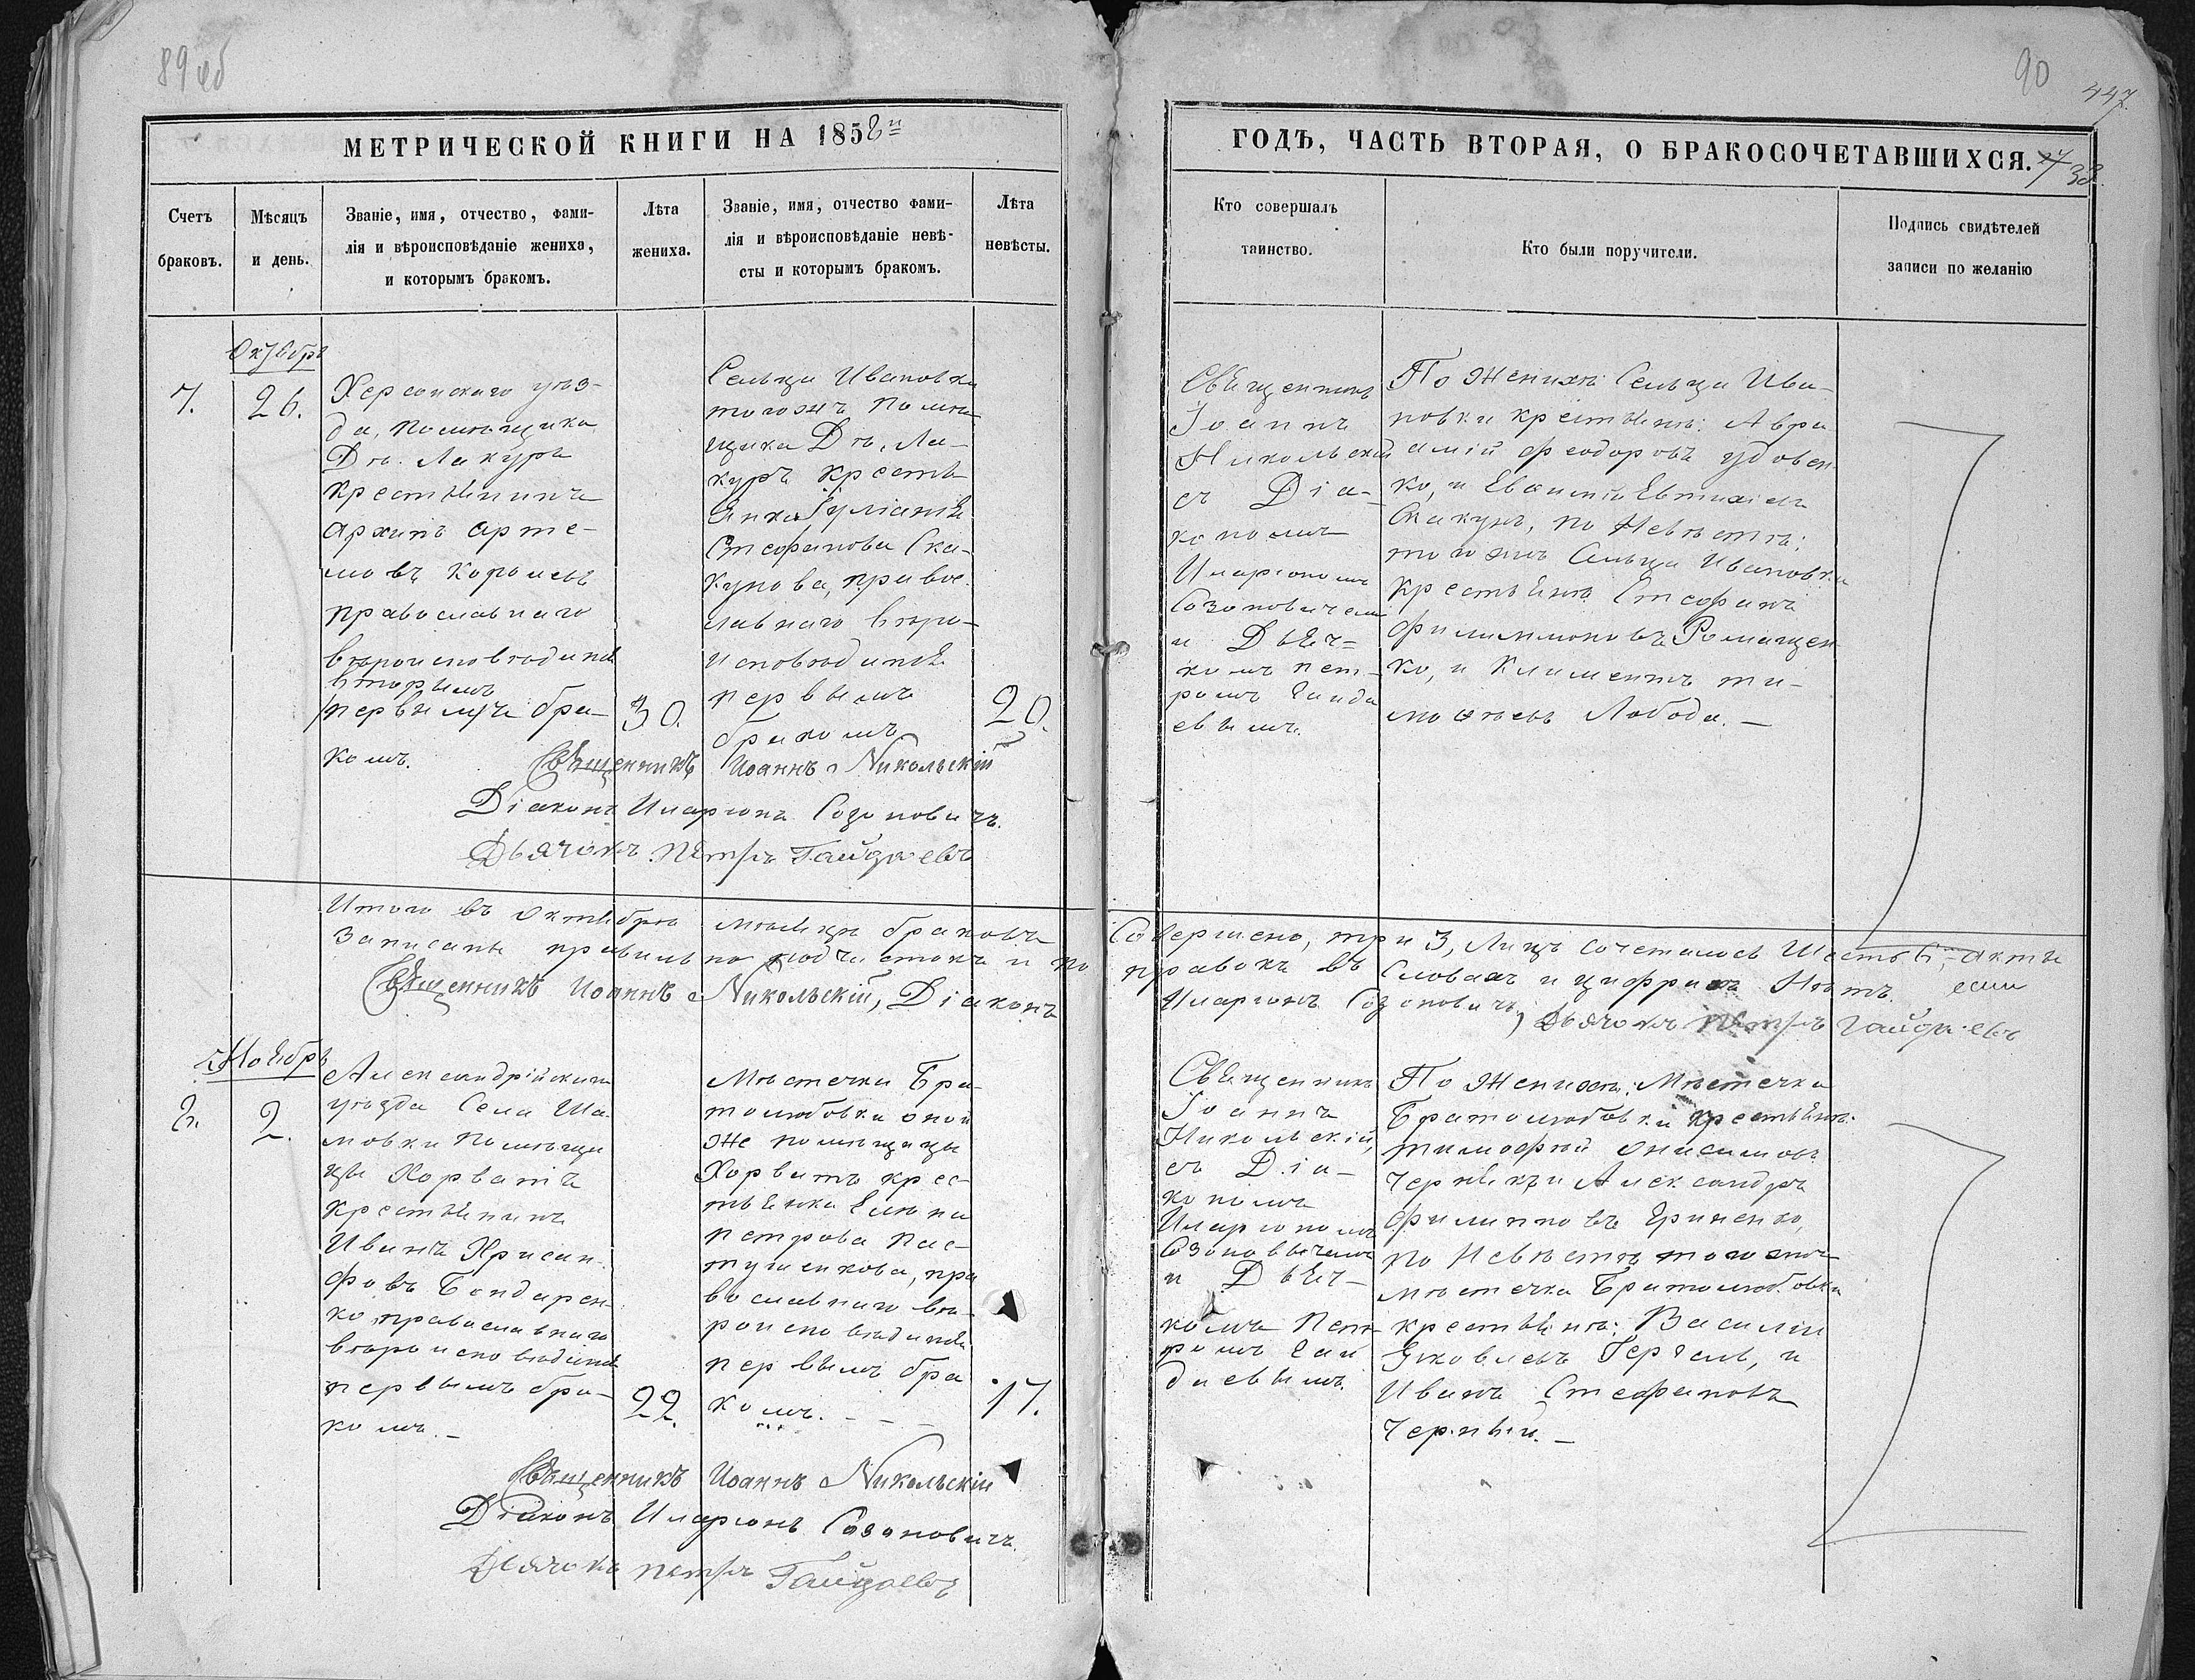 89 об
90
447.
МЕТРИЧЕСКОЙ КНИГИ НА 1858й
ГОДЪ, ЧАСТЬ ВТОРАЯ, О БРАКОСОЧЕТАВШИХСЯ.
Счетъ
браковъ.
Мѣсяцъ
и день.
Званіе, имя, отчество, фами-
лія и вѣроисповѣданіе жениха,
и которымъ бракомъ.
Лѣта
жениха.
Званіе, имя, отчество фами-
лія и вѣроисповѣданіе невѣ-
сты и которымъ бракомъ.
Лѣта
невѣсты.
Кто совершалъ
таинство.
Кто были поручители.
Подпись свидѣтелей
записи по желанію
Октябрь
7.
26.
Херсонскаго уѣз-
да, помѣщика
Дѣ. Лакура
крестьянинъ
Архипъ Арте-
мовъ
православнаго
вѣроисповѣданія
вторымъ
первымъ бра-
комъ.
30.
Сельца Ивановки
тогожъ помѣ-
щика Дѣ. Ла-
куръ кресть-
янка Іуліанія
Стефанова Ска-
кунова, право-
славнаго вѣро-
исповѣданія
первымъ
бракомъ
20.
Священникъ
Іоаннъ
Никольскій
съ Діа-
кономъ
Иларіономъ
Созоновичемъ
и Дьяч-
комъ Пет-
ромъ Гайда-
евымъ.
По Женихѣ: Сельца Ива-
новки крестьяне: Авра-
амій Феодоровъ Удовен-
ко, и Евфимій Евтихіевъ
Скакунъ, по Невѣстѣ:
тогожъ Сельца Ивановки
крестьяне Стефанъ
Филимоновъ Ромащен-
ко, и Климентъ Ти-
мофѣевъ Лобода. —
Священникъ Іоаннъ Никольскій
Діаконъ Иларіонъ Созоновичъ.
Дьячокъ Петръ Гайдаевъ
Итого въ Октябрѣ мѣсяцѣ браковъ Совершено, три 3, Лицъ сочеталось Шесть 6, Акты
записаны правильно подчистокъ и поправокъ въ Словахъ и цифрахъ Нѣтъ.
Священникъ Іоаннъ Никольскій, Діаконъ Иларіонъ Созоновичъ, Дьячокъ Петръ Гайдаевъ
Ноябрь
8.
2.
Александрійскаго
уѣзда Села Ша-
мовки помѣщи-
цы Хорватъ
крестьянинъ
Иванъ Хрисан-
фовъ Бондарен-
ко, православнаго
вѣроисповѣданія
первымъ бра-
комъ. —
22.
Мѣстечка Бра-
толюбовки оной
же помѣщицы
Хорватъ крес-
тьянка Елена
Петрова Пас-
тушенкова, пра-
вославнаго вѣ-
роисповѣданія
первымъ бра-
комъ. — — —
17.
Священникъ
Іоаннъ
Никольскій,
съ Діа-
кономъ
Иларіономъ
Созоновичемъ
и Дьяч-
комъ Пет-
ромъ Гай-
даевымъ.
По Женихѣ: Мѣстечка
Братолюбовки крестьяне:
Тимофей Онисимовъ
Чернякъ, и Александръ
Филипповъ Гриненко,
по Невѣстѣ тогожъ
мѣстечка Братолюбовки
крестьяне: Василій
Яковлевъ и
Иванъ Стефановъ
Черный. —
Священникъ Іоаннъ Никольскій
Діаконъ Иларіонъ Созоновичъ.
Дьячокъ Петръ Гайдаевъ